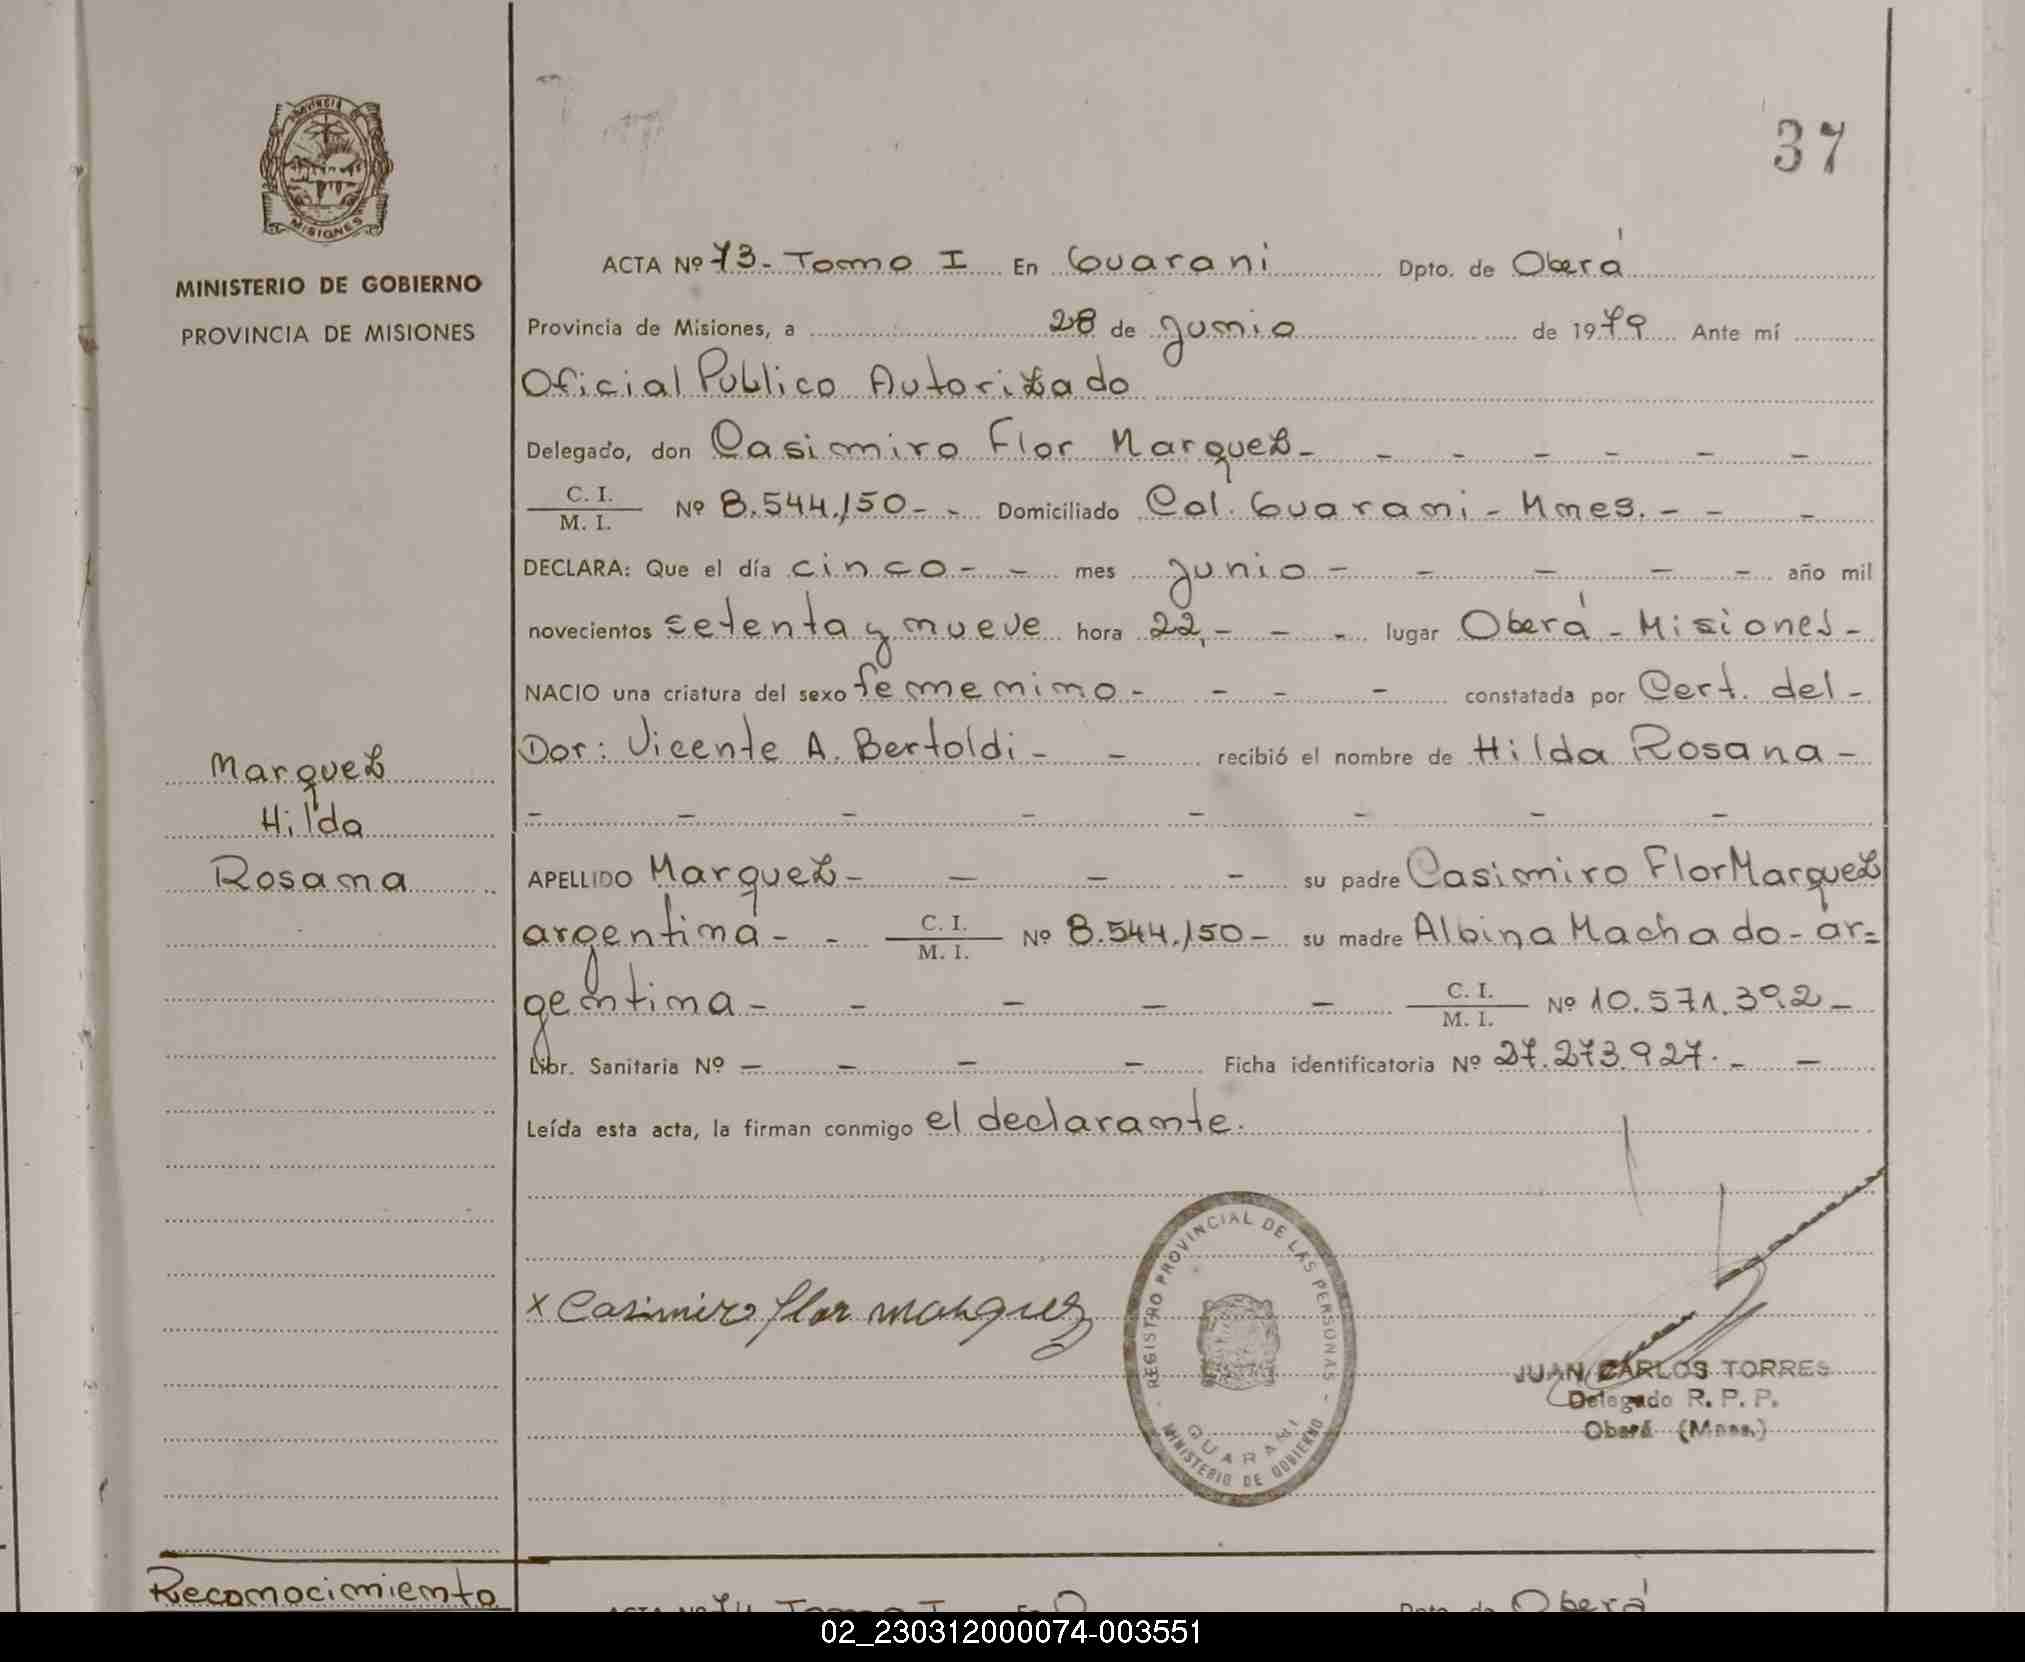 37
PROVINCIA
MISIONES
MINISTERIO DE GOBIERNO
PROVINCIA DE MISIONES
ACTA Nº 73.- Tomo I En Guarani Dpto. de Oberá
Provincia de Misiones, a 28 de Junio de 1979 Ante mí
Oficial Publico Autorizado
Delegado, don Casimiro Flor Marquez - - - - - - -
C. I.
M. I.
Nº 8.544.150 - - Domiciliado Col. Guarani - Mnes. - - -
DECLARA: Que el día cinco - - mes Junio - - - - - año mil
novecientos setenta y nueve hora 22,- - - lugar Oberá - Misiones -
NACIO una criatura del sexo femenino - - - - constatada por Cert. del -
Dor: Vicente A. Bertoldi - - recibió el nombre de Hilda Rosana -
- - - - - - - -
Marquez
Hilda
Rosana
APELLIDO Marquez - - - - su padre Casimiro Flor Marquez
argentina - - C. I. M. I. Nº 8.544.150 - su madre Albina Machado - ar=
gentina - - - - - C. I. M. I. Nº 10.571.392 -
Libr. Sanitaria Nº - - - - Ficha identificatoria Nº 27.273.927. - -
Leída esta acta, la firman conmigo el declarante.
x Casimiro flor marquez
REGISTRO PROVINCIAL DE LAS PERSONAS -
GUARANI
MINISTERIO DE GOBIERNO
JUAN CARLOS TORRES
Delegado R. P. P.
Oberá (Mnes.)
Reconocimiento
ACTA Nº 74 Tomo I En Dpto. de Oberá
02_230312000074-003551